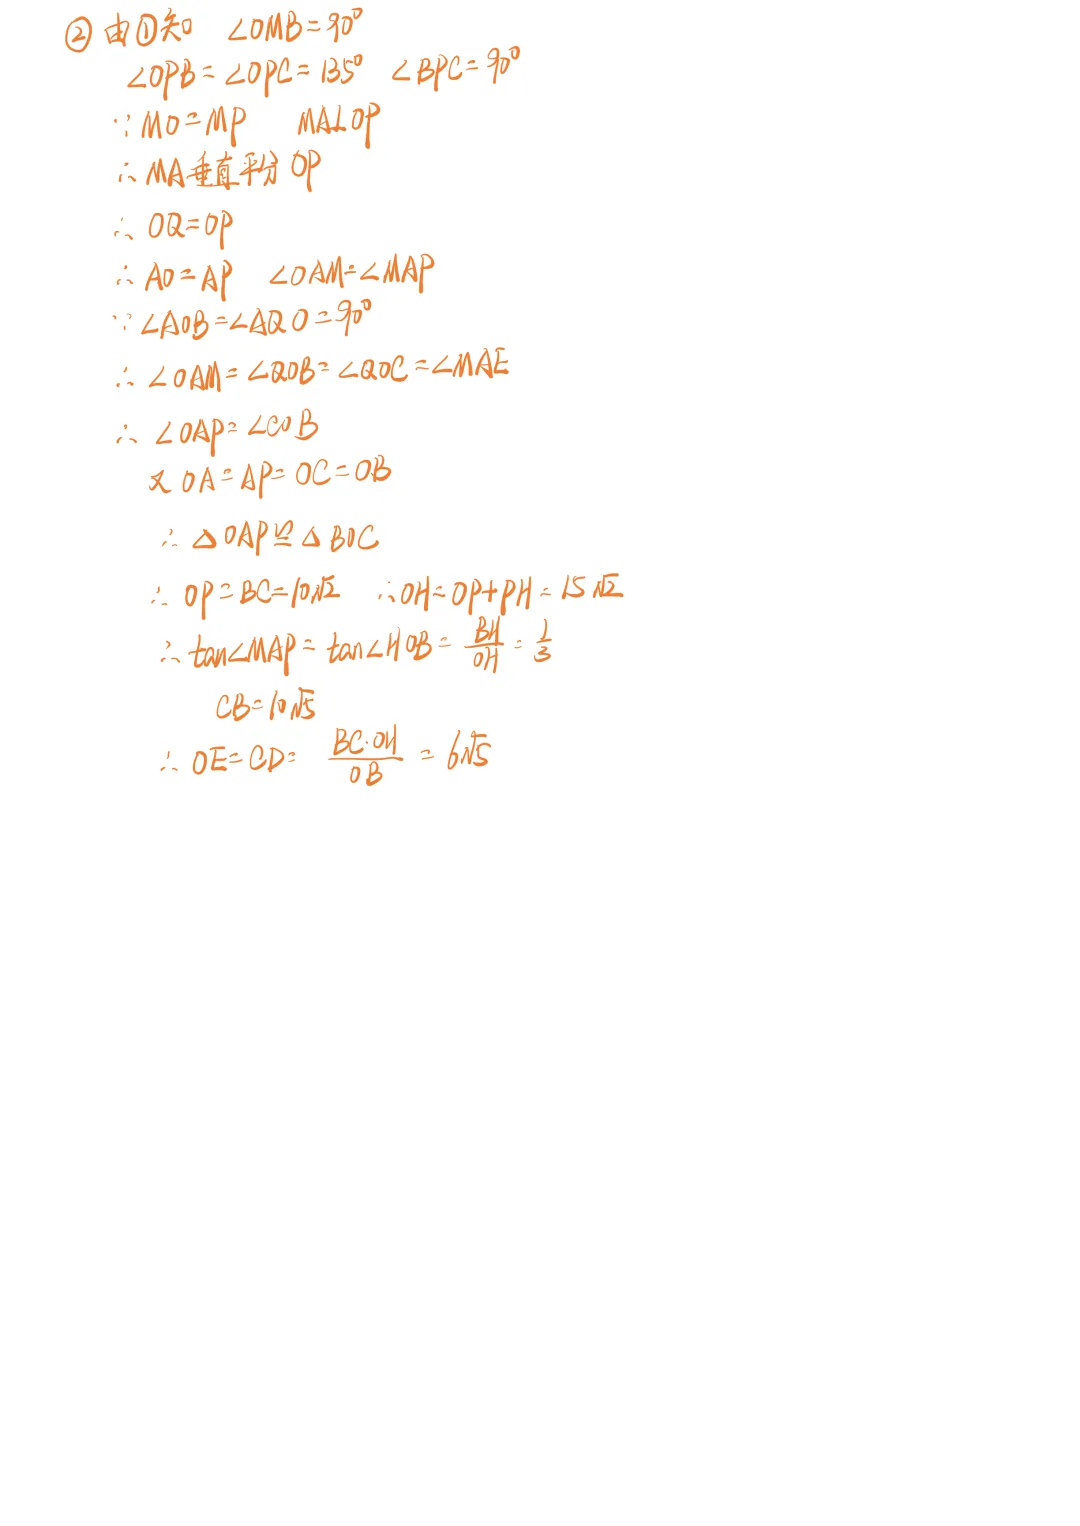 ② 由①知 ∠OMB=90°
∠OPB=∠OPC=135° ∠BPC=90°
∵MO=MP MA⊥OP
∴MA垂直平分OP
∴OQ=OP
∴AO=AP ∠OAM=∠MAP
∵∠AOB=∠AQO=90°
∴∠OAM=∠QOB=∠QOC=∠MAE
∴∠OAP=∠COB
又OA=AP=OC=OB
∴△OAP≌△BOC
∴OP=BC=10√2 ∴OH=OP+PH=15√2
∴tan∠MAP=tan∠HOB=BH/OH=1/3
CB=10√5
∴OE=CD=BC·OH/OB=6√5